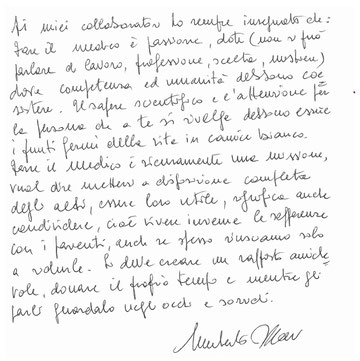 Ai miei collaboratori ho sempre insegnato che:
fare il medico è passione, dote (non si può
parlare di lavoro, professione, scelta, mestiere)
dove competenza ed umanità debbono coe
sistere. Il sapere scientifico e l'attenzione per
la persona che a te si rivolge debbono essere
i punti fermi della vita in camice bianco.
Fare il Medico è sicuramente una missione,
vuol dire mettersi a disposizione completa
degli altri, essere loro utile, significa anche
condividere, cioè vivere insieme le sofferenze
con i pazienti, anche se spesso riusciamo solo
a volerle. Si deve creare un rapporto amiche
vole, donare il proprio tempo e mentre gli
parli guardalo negli occhi e sorridi.